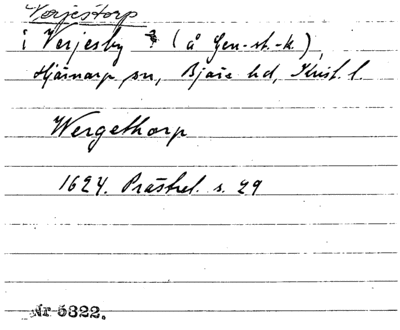 Verjestorp
i Verjesby ? (å Gen.-st.-k.),
Hjärnarp sn, Bjäre hd, Krist. l.
Wergethorp
1624. Prästrel. s. 29
Nr 5322.